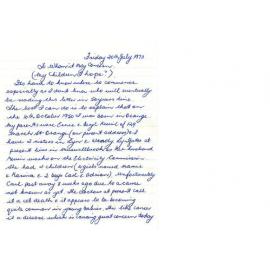 Friday 20th July 1973
To Whom it May Concern
(my children I hope")
Its hard to know where to commence
especially as I don't know who will eventually
be reading this letter in 50 years time.
The best I can do is explain that on
the 10th October 1950 I was born in Orange
my parents were Bruce & Beryl
March St Orange (our present address) I
have 2 sisters in Lyn & Wendy. Lyn lives at
present time in Muswellbrook as her husband
Kevin works on the Electricity Commission
She had 4 children (2 girls named
& Narina & 2 boys Carl & Adrian). Unfortunately
Carl past away 3 weeks ago due to a cause
not known as yet. The doctors at present call
it a cot death & it appears to be becoming
quite common in young babies, this like cancer
is a disease which is causing great concern today